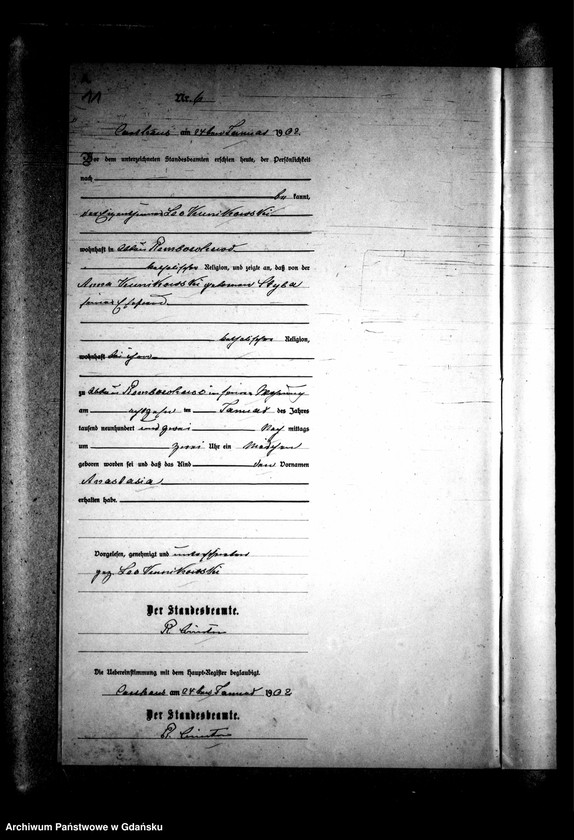 A
11
Nr. 6
Carthaus am 24ten Januar 1902.
Vor dem unterzeichneten Standesbeamten erschien heute, der Persönlichkeit
nach
be kannt,
der Eigenthümer Leo Kunikowski
wohnhaft in Abbau Remboschewo
katholischer Religion, und zeigte an, daß von der
Anna Kunikowski geborenen
seiner Ehefrau
katholischer Religion,
wohnhaft bei ihm
zu Abbau Remboschewo in seiner Wohnung
am achtzehn ten Januar des Jahres
tausend neunhundert und zwei Nach mittags
um zwei Uhr ein Mädchen
geboren worden sei und daß das Kind den Vornamen
Anastasia
erhalten habe.
Vorgelesen, genehmigt und unterschrieben
gez. Leo Kunikowski
Der Standesbeamte.
Die Uebereinstimmung mit dem Haupt-Register beglaubigt.
Carthaus am 24ten Januar 1902
Der Standesbeamte.
Archiwum Państwowe w Gdańsku